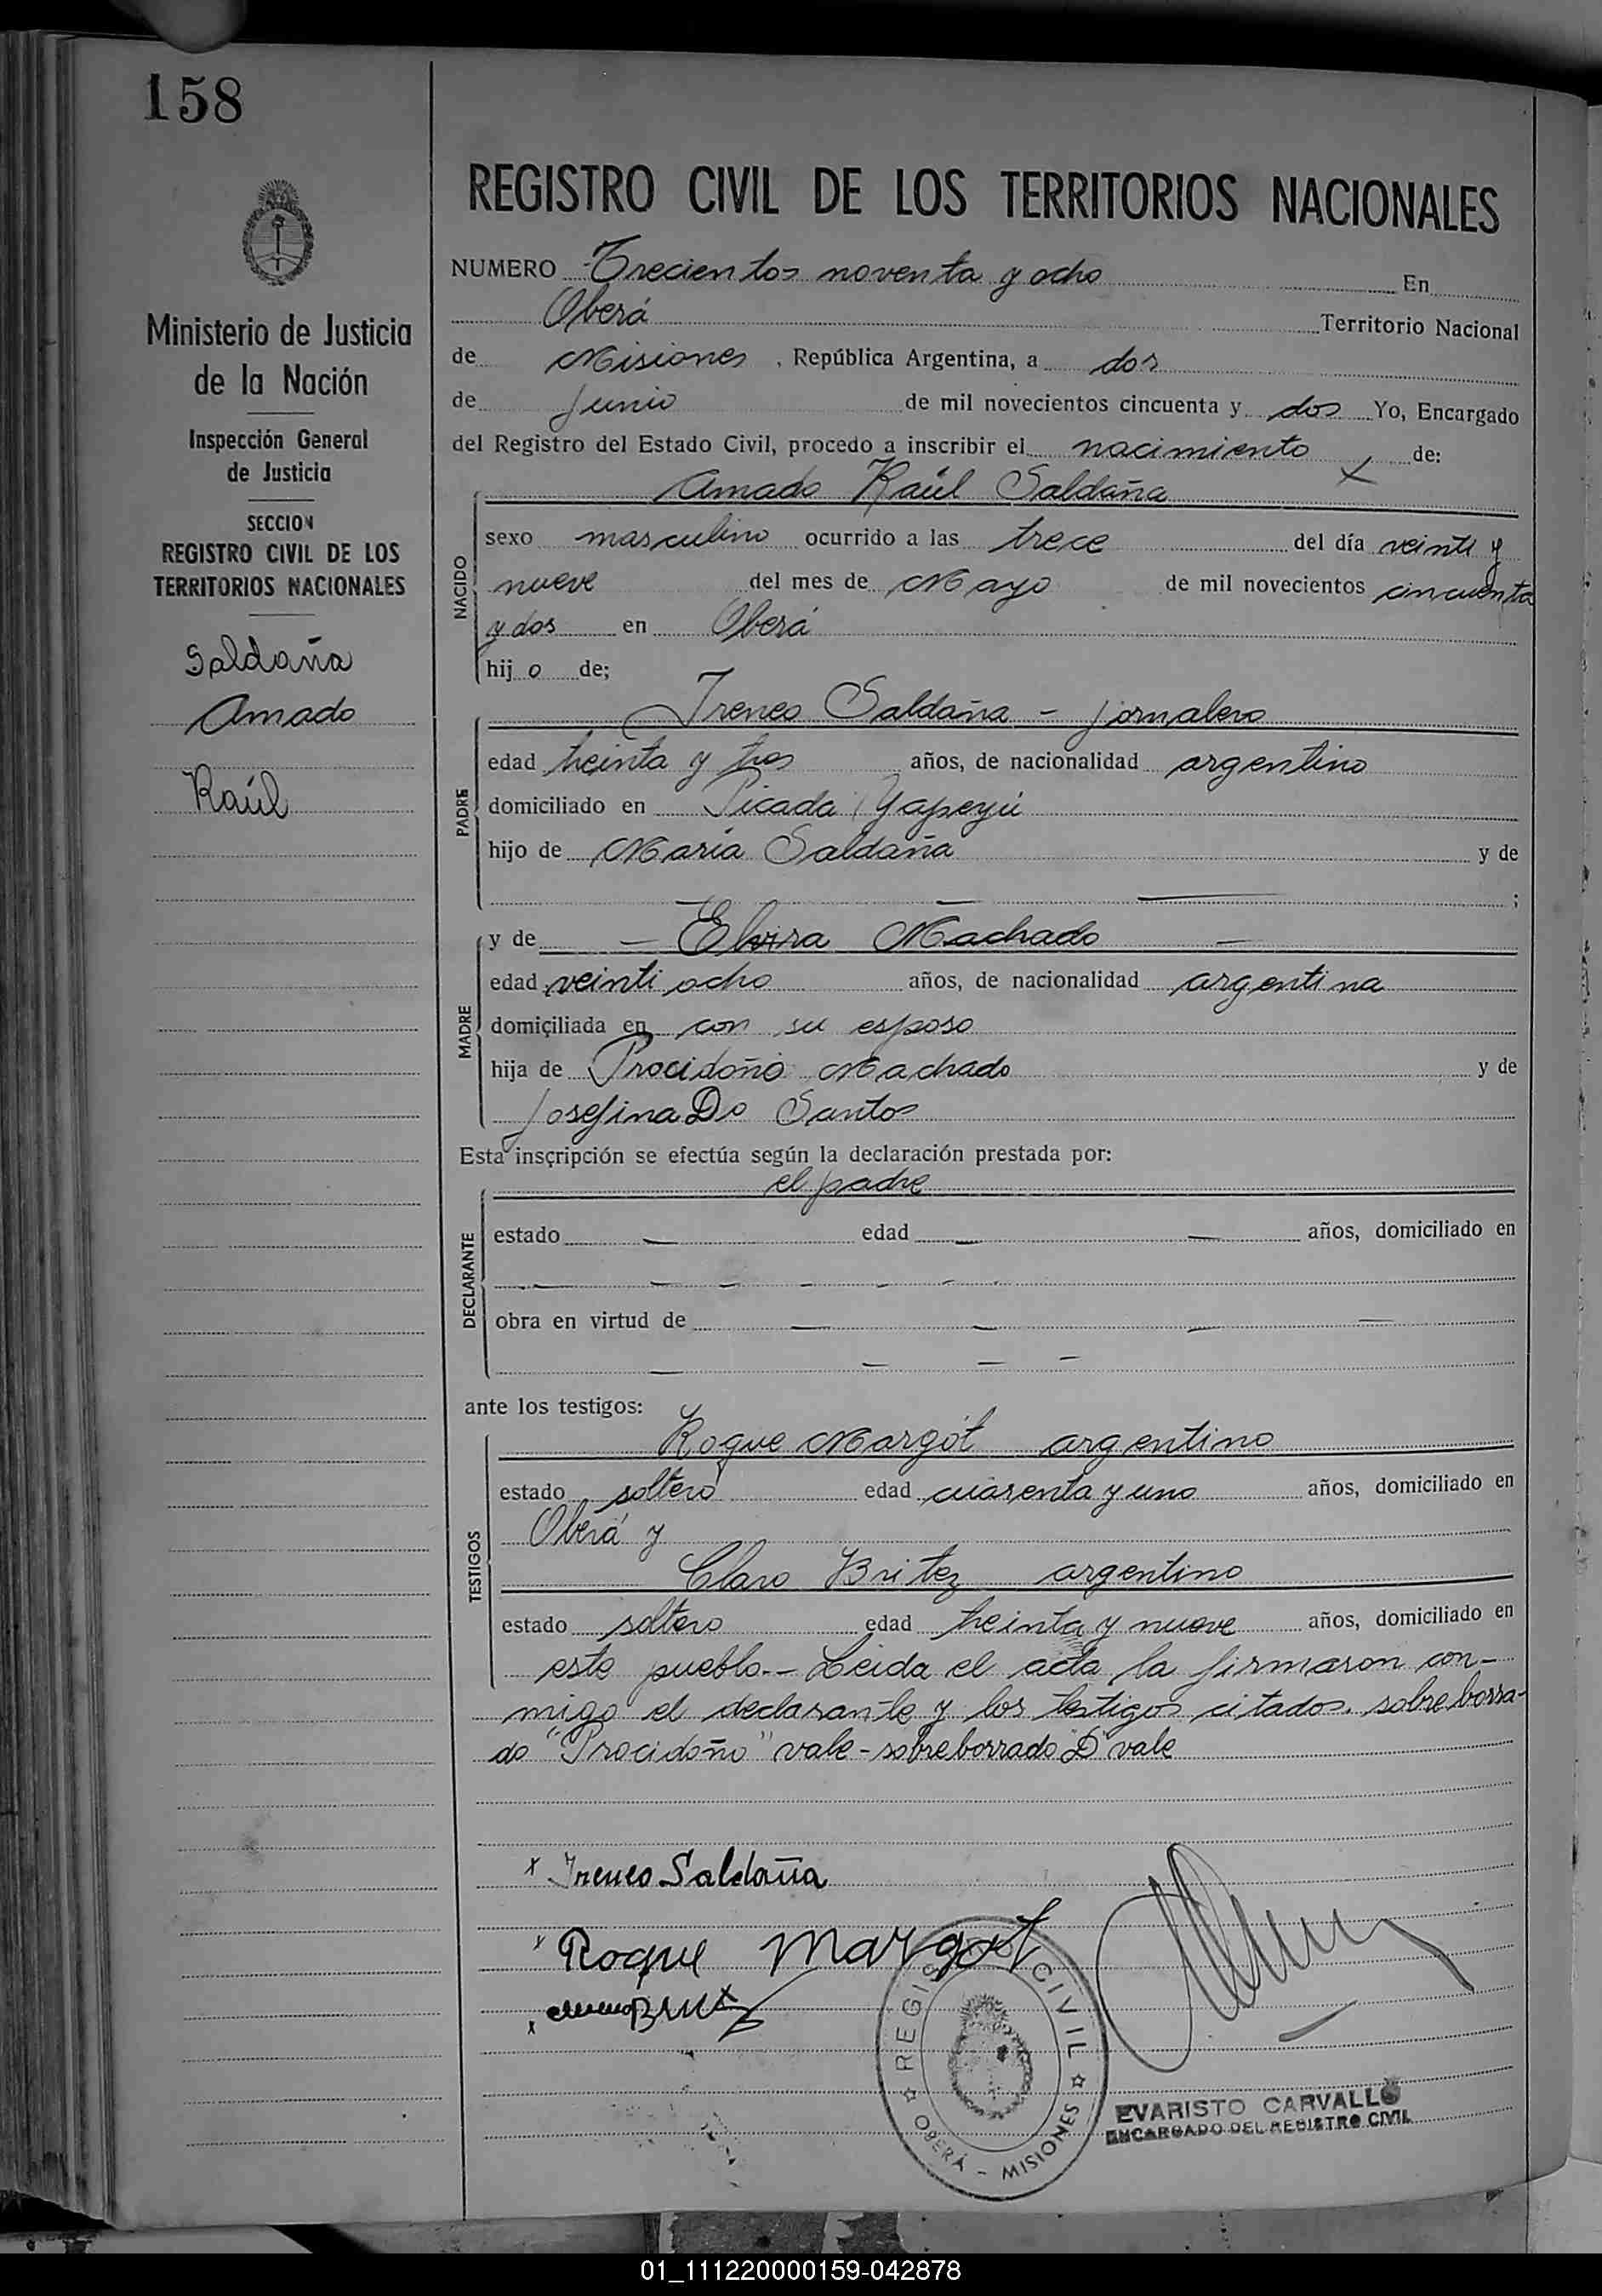 158
Ministerio de Justicia
de la Nación
Inspección General
de Justicia
SECCION
REGISTRO CIVIL DE LOS
TERRITORIOS NACIONALES
Saldaña
Amado
Raúl
REGISTRO CIVIL DE LOS TERRITORIOS NACIONALES
NUMERO Trecientos noventa y ocho En
Oberá Territorio Nacional
de Misiones, República Argentina, a dos
de Junio de mil novecientos cincuenta y dos Yo, Encargado
del Registro del Estado Civil, procedo a inscribir el nacimiento de:
Amado Raúl Saldaña x
NACIDO
sexo masculino ocurrido a las trece del día veinti y
nueve del mes de Mayo de mil novecientos cincuenta
y dos en Oberá
hij o de;
Ireneo Saldaña - jornalero
PADRE
edad treinta y tres años, de nacionalidad argentino
domiciliado en Picada Yapeyú
hijo de María Saldaña y de
— — — ;
y de — Elvira Machado —
MADRE
edad veinti ocho años, de nacionalidad argentina
domiciliada en con su esposo
hija de Procidoño Machado y de
Josefina Do Santos
Esta inscripción se efectúa según la declaración prestada por:
el padre
DECLARANTE
estado — edad — — años, domiciliado en
— — — — — — —
obra en virtud de — — — —
— — — —
ante los testigos:
Roque Margót argentino
TESTIGOS
estado soltero edad cuarenta y uno años, domiciliado en
Oberá y
Claro Britez argentino
estado soltero edad treinta y nueve años, domiciliado en
este pueblo.- Leida el acta la firmaron con-
migo el declarante y los testigos citados. sobre borra-
do "Procidoño" vale - sobreborrado "D" vale
x Ireneo Saldaña
x Roque Margot
x Britez
REGISTRO CIVIL
OBERÁ - MISIONES
EVARISTO CARVALLO
ENCARGADO DEL REGISTRO CIVIL
01_111220000159-042878